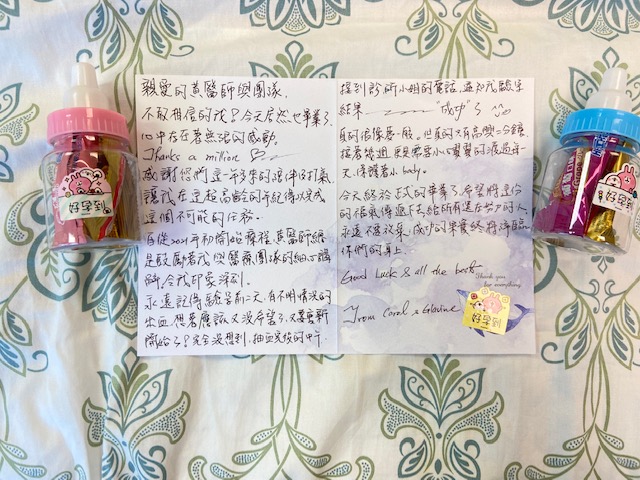 親愛的黃醫師與團隊,
不敢相信的我?今天居然也畢業了,
心中存在著無限的感動。
Thanks a million
感謝您們這一年多來的溫中打氣
讓我在這超高齡的年紀得以完成
這個不可能的任務。
自從2021年初開始療程,黃醫師總
是鼓勵著我與醫療團隊的細心講
解,令我印象深刻。
永遠記得驗孕前一天,有不明情況的
出血,想著應該又沒希望了,又要重新
開始了?完全沒想到,抽血完後的中午,
接到診所小姐的電話,通知我驗孕
結果 "成功"了
真的很像夢一般,但真的只有高興一分鐘,
接著幾週更是需要小心翼翼的渡過每一
天,保護著小body。
今天終於正式的畢業了,希望將這份
好孕氣傳遞下去給所有還在努力的人,
永遠不要放棄,成功的果實終將降臨在
你們的身上。
Good Luck & all the best
Thank you
for everything
From Carol & Glavine
好孕到
好孕到
好孕到